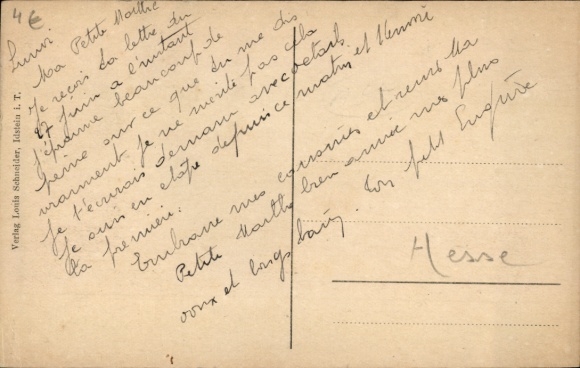 4 €
Lundi
Ma Petite Marthe
Je reçois ta lettre du
27 Juin à l'instant
J'éprouve beaucoup de
peine sur ce que tu me dis
vraiment je ne mérite pas cela
Je t'écrirais demain avec détails
Je suis en etape depuis ce matin et
ta première.
Embrasse mes cousines et reçois Ma
Petite Marthe bien aimée mes plus
doux et longs baisers.
Ton petit
Hesse
Verlag Louis Schneider, Idstein i. T.